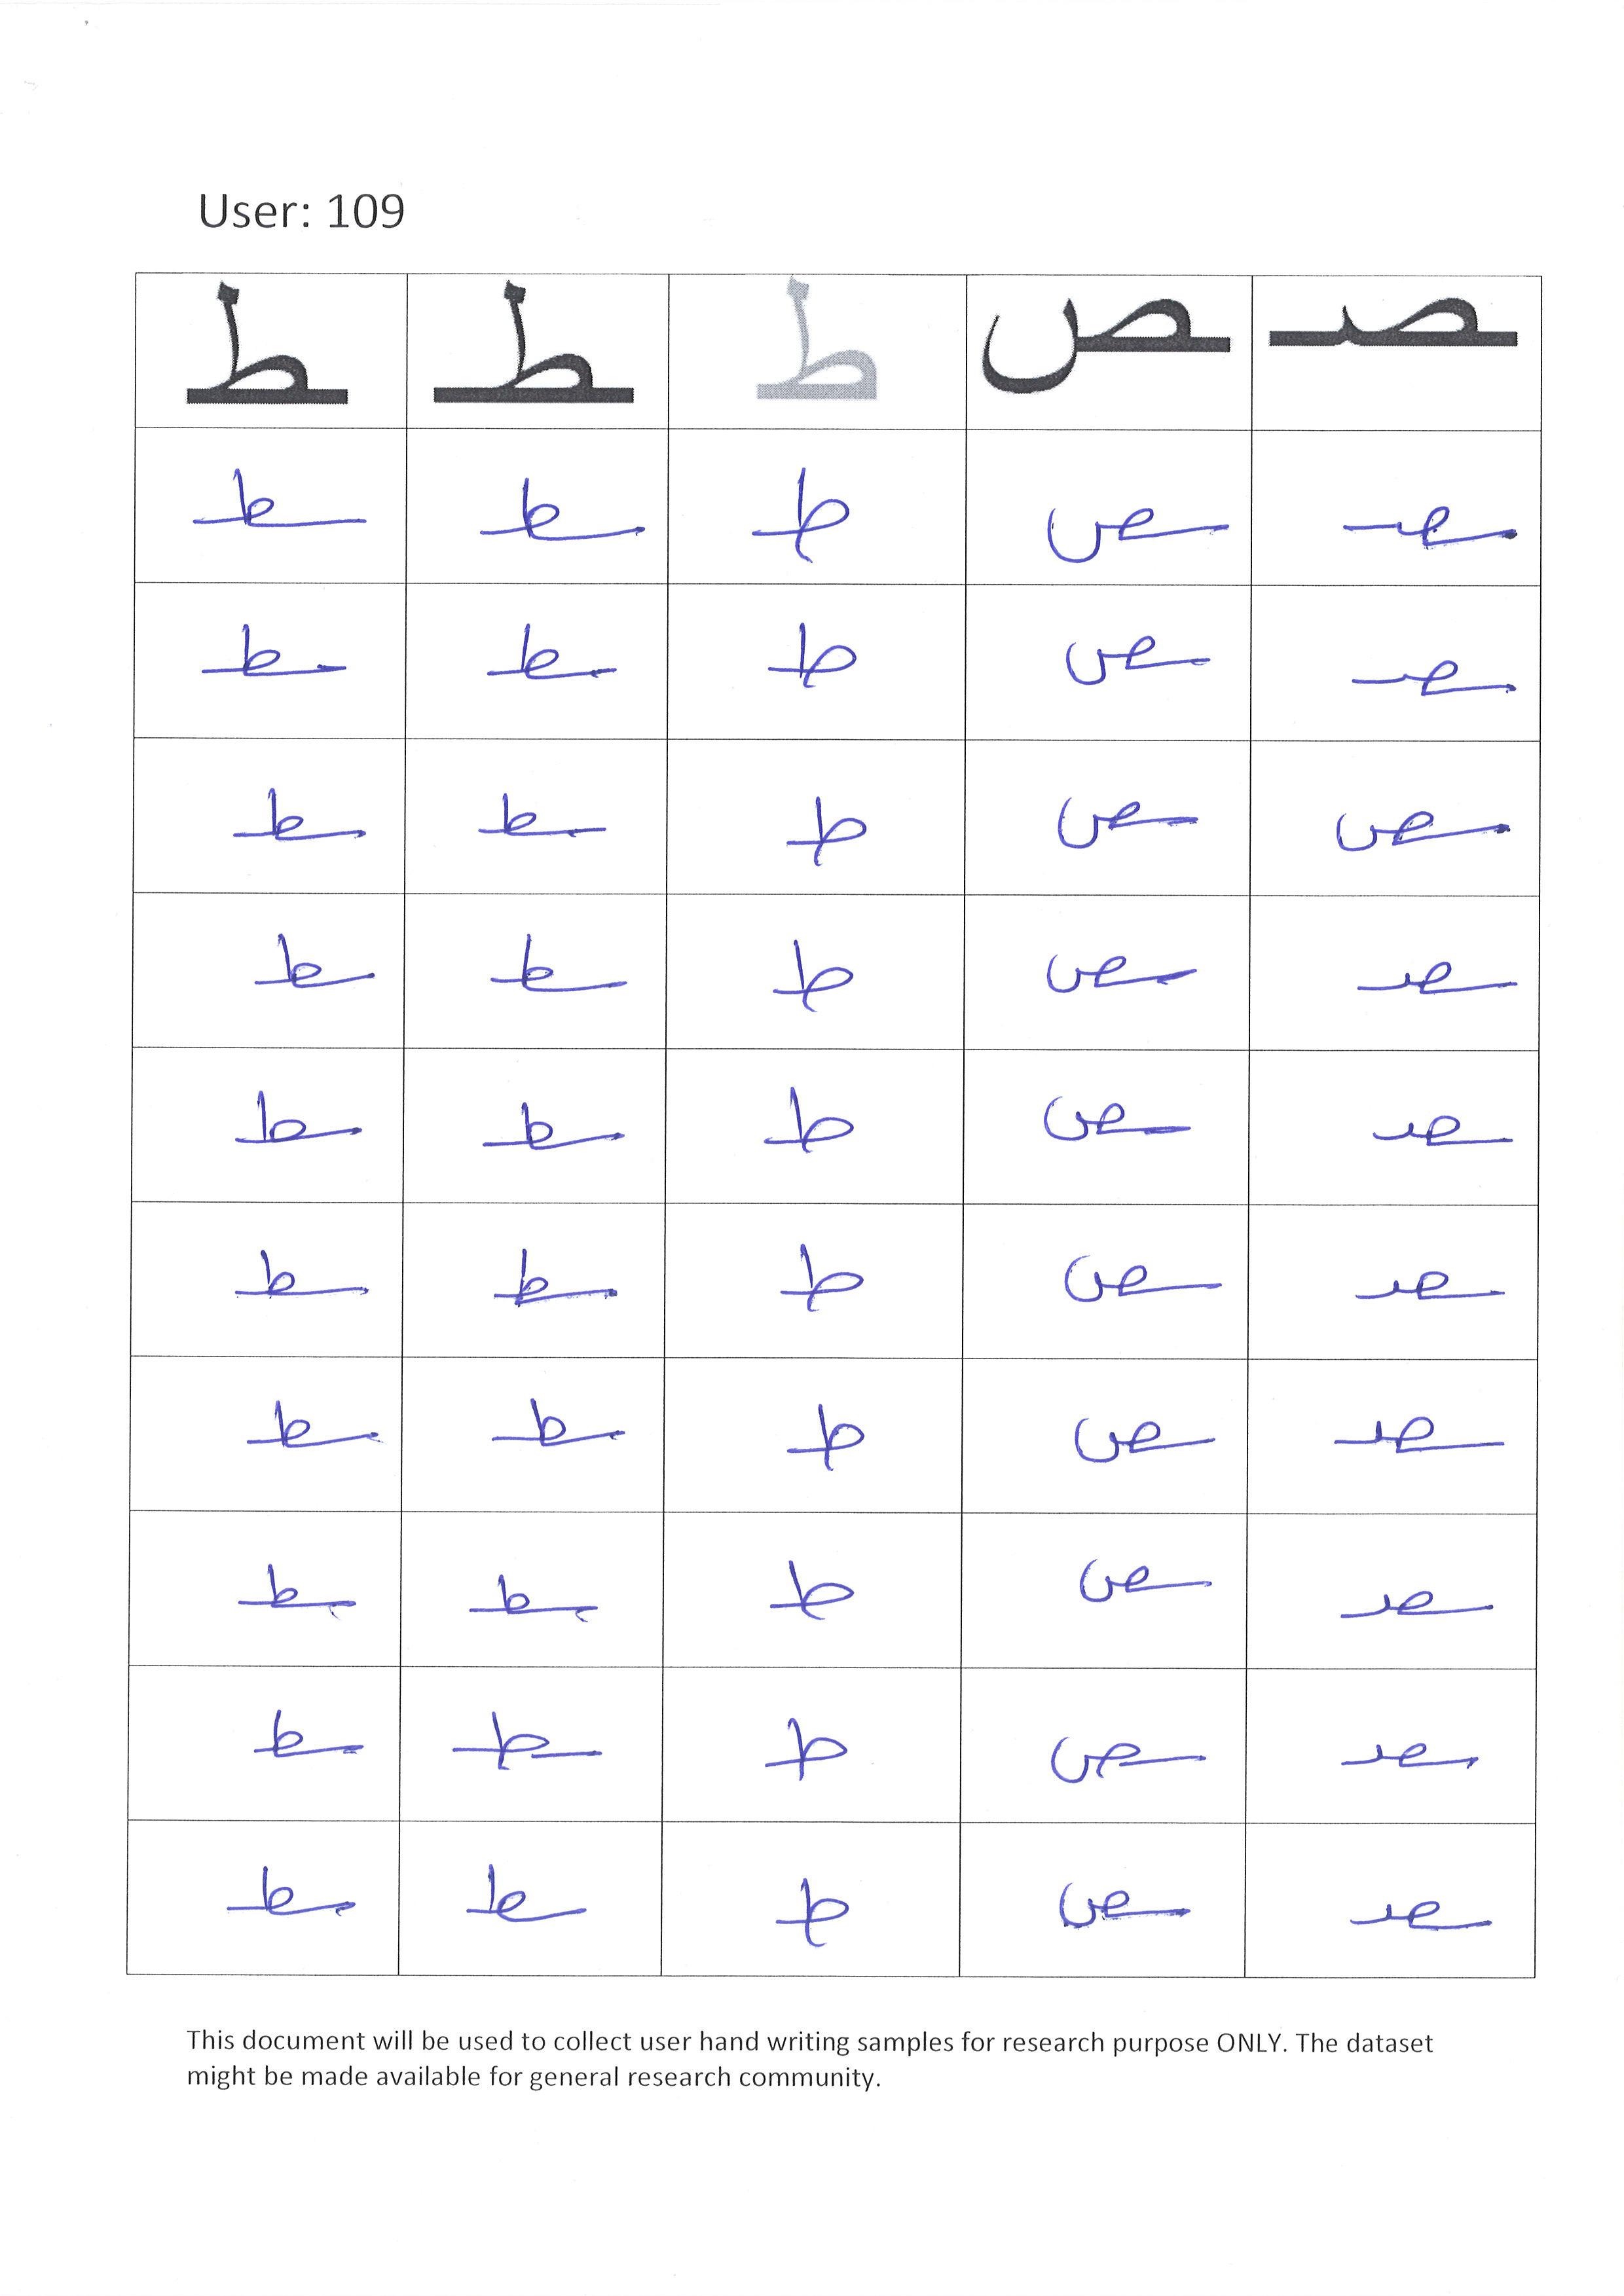 User: 109
ـصـ ـص ط ـطـ ـط
ـصـ ـص ط ـطـ ـط
ـصـ ـص ط ـطـ ـط
ـص ـص ط ـطـ ـط
ـصـ ـص ط ـطـ ـط
ـصـ ـص ط ـطـ ـط
ـصـ ـص ط ـطـ ـط
ـصـ ـص ط ـطـ ـط
ـصـ ـص ط ـطـ ـط
ـصـ ـص ط ـطـ ـط
ـصـ ـص ط ـطـ ـط
This document will be used to collect user hand writing samples for research purpose ONLY. The dataset
might be made available for general research community.